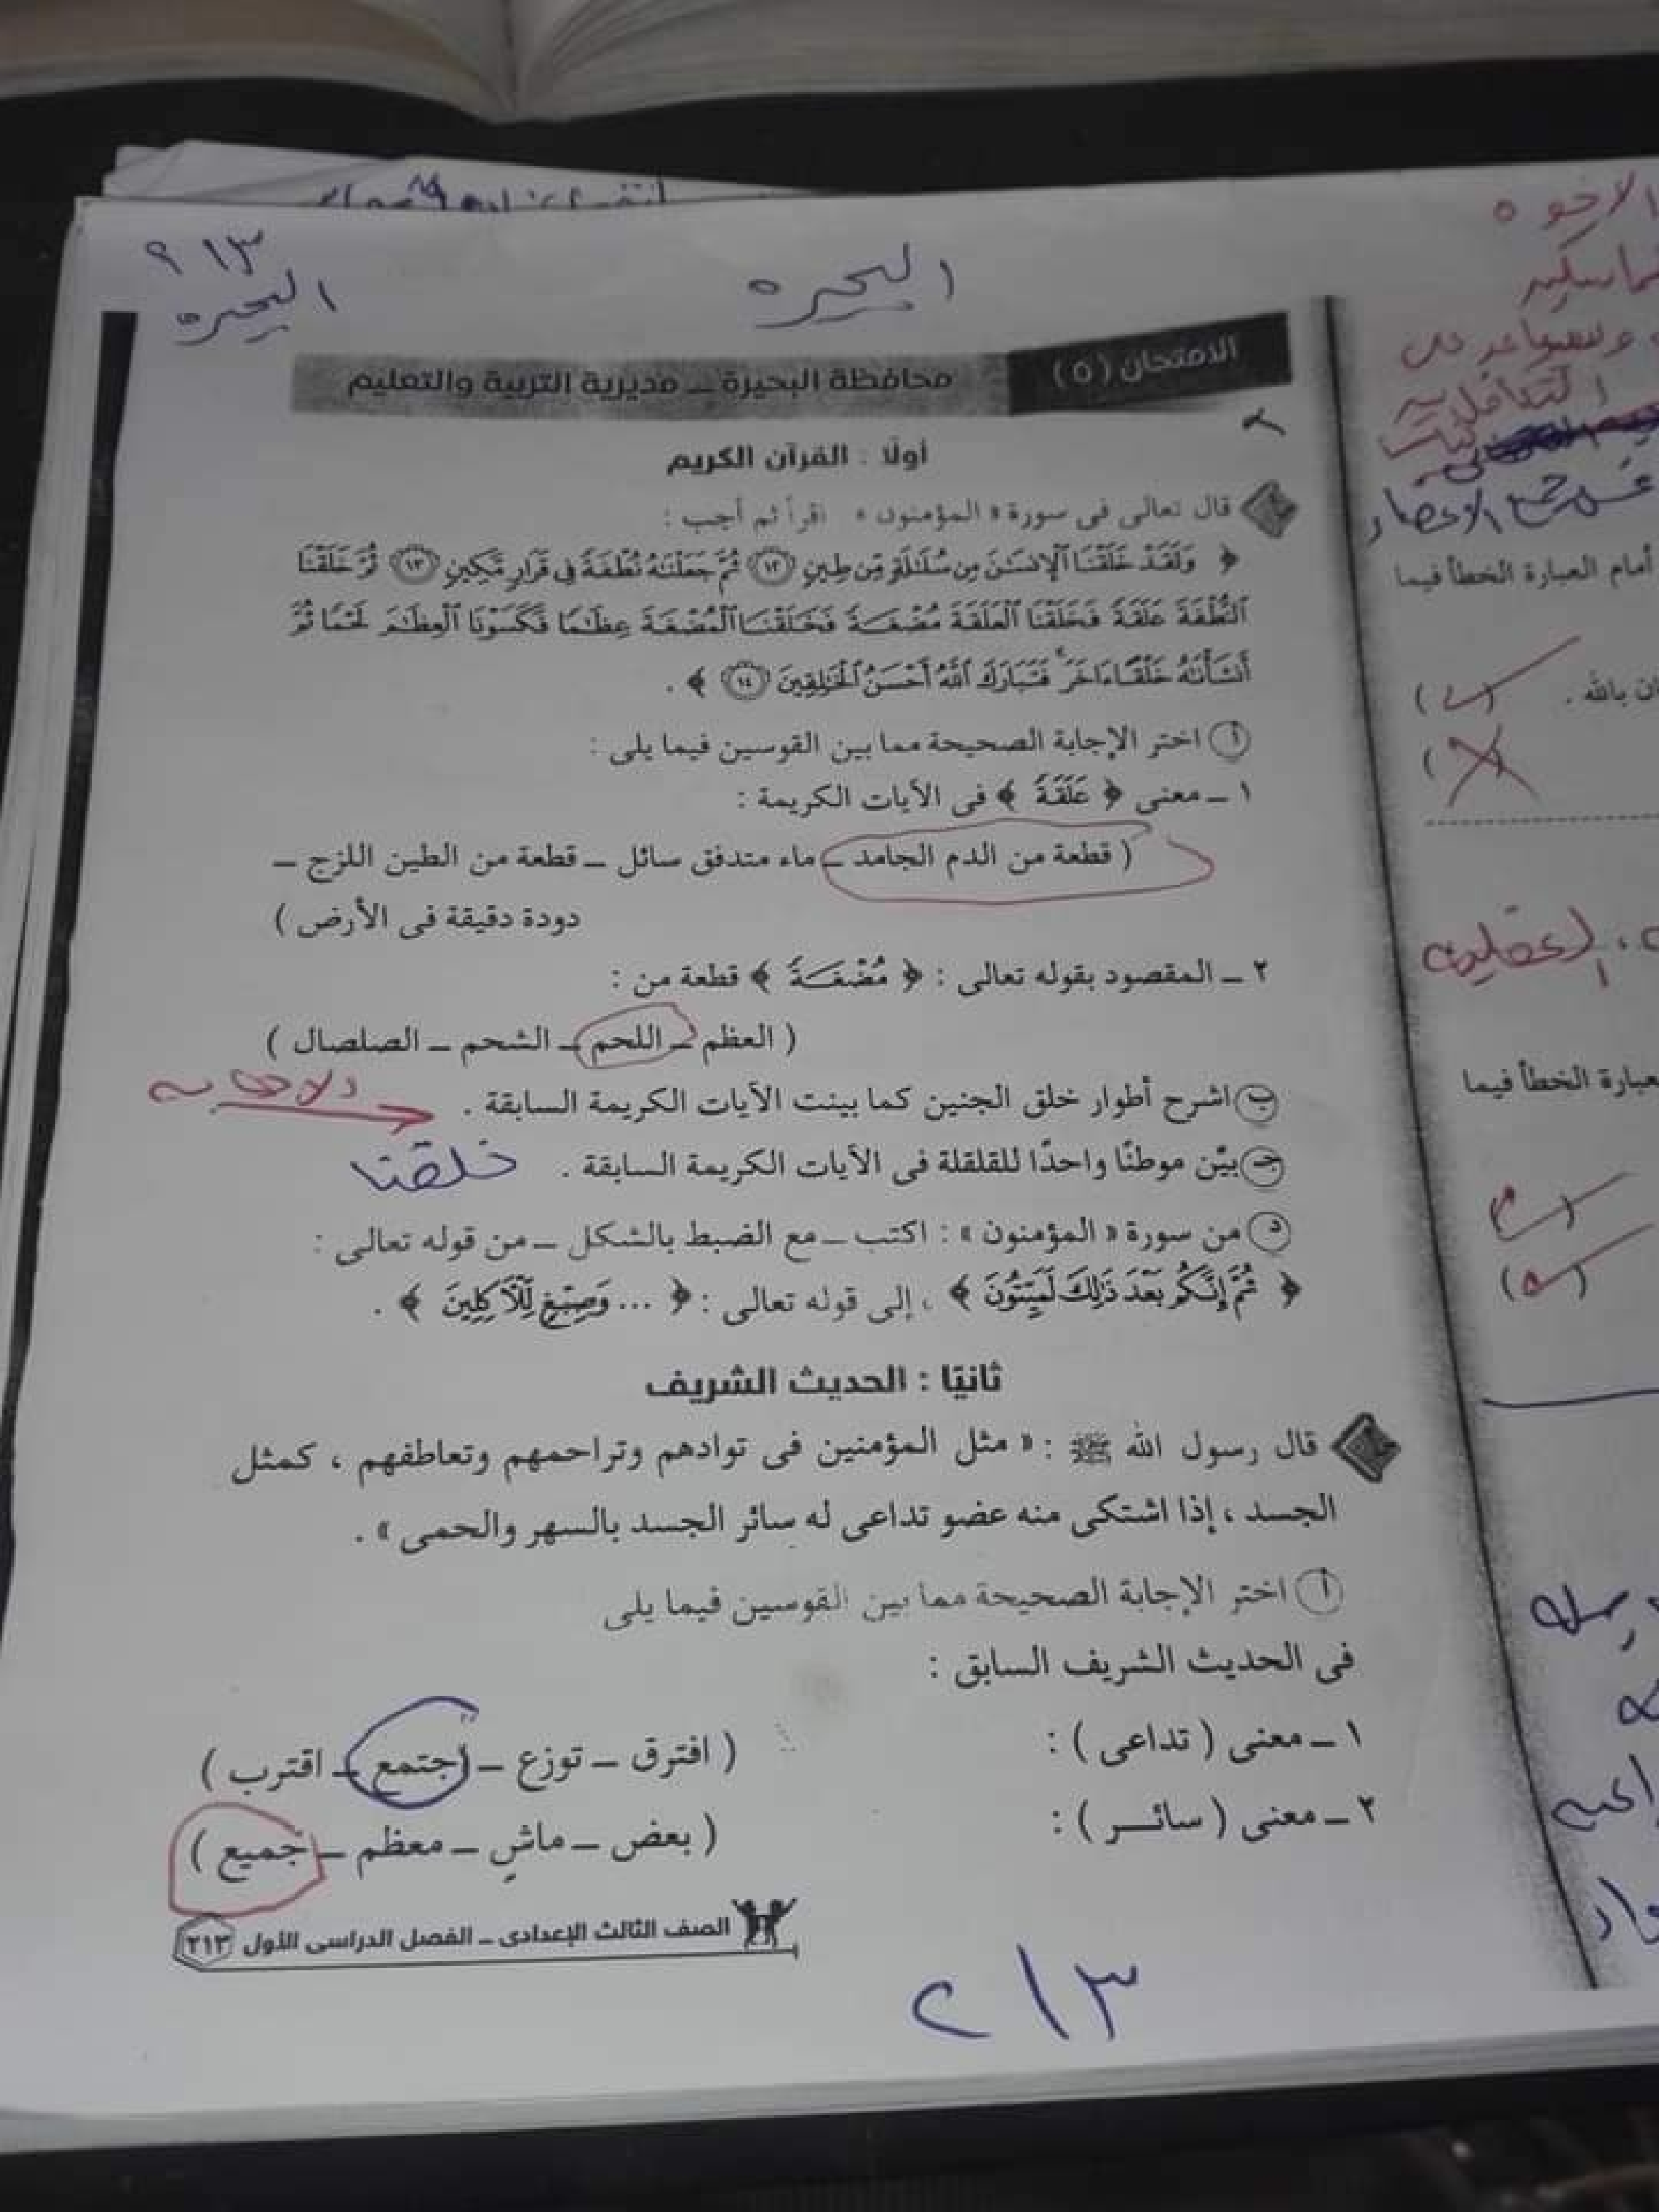 ٢١٣
البحيره
البحيره
الامتحان (٥) محافظة البحيرة ــ مديرية التربية والتعليم
أولًا : القرآن الكريم
قال تعالى فى سورة « المؤمنون » اقرأ ثم أجب :
﴿ وَلَقَدْ خَلَقْنَا ٱلْإِنسَٰنَ مِن سُلَٰلَةٍ مِّن طِينٍ ﴿١٢﴾ ثُمَّ جَعَلْنَٰهُ نُطْفَةً فِى قَرَارٍ مَّكِينٍ ﴿١٣﴾ ثُمَّ خَلَقْنَا
ٱلنُّطْفَةَ عَلَقَةً فَخَلَقْنَا ٱلْعَلَقَةَ مُضْغَةً فَخَلَقْنَا ٱلْمُضْغَةَ عِظَٰمًا فَكَسَوْنَا ٱلْعِظَٰمَ لَحْمًا ثُمَّ
أَنشَأْنَٰهُ خَلْقًا ءَاخَرَ ۚ فَتَبَارَكَ ٱللَّهُ أَحْسَنُ ٱلْخَٰلِقِينَ ﴿١٤﴾ ﴾ .
أ اختر الإجابة الصحيحة مما بين القوسين فيما يلى :
١ ــ معنى ﴿ عَلَقَةً ﴾ فى الآيات الكريمة :
( قطعة من الدم الجامد ــ ماء متدفق سائل ــ قطعة من الطين اللزج ــ
دودة دقيقة فى الأرض )
٢ ــ المقصود بقوله تعالى : ﴿ مُضْغَةً ﴾ قطعة من :
( العظم ــ اللحم ــ الشحم ــ الصلصال )
ب اشرح أطوار خلق الجنين كما بينت الآيات الكريمة السابقة .
جـ بيّن موطنًا واحدًا للقلقلة فى الآيات الكريمة السابقة . خلقنا
د من سورة « المؤمنون » : اكتب ــ مع الضبط بالشكل ــ من قوله تعالى :
﴿ ثُمَّ إِنَّكُم بَعْدَ ذَٰلِكَ لَمَيِّتُونَ ﴾ ، إلى قوله تعالى : ﴿ ... وَصِبْغٍ لِّلْآكِلِينَ ﴾ .
ثانيًا : الحديث الشريف
قال رسول الله ﷺ : « مثل المؤمنين فى توادهم وتراحمهم وتعاطفهم ، كمثل
الجسد ، إذا اشتكى منه عضو تداعى له سائر الجسد بالسهر والحمى » .
أ اختر الإجابة الصحيحة مما بين القوسين فيما يلى
فى الحديث الشريف السابق :
١ ــ معنى ( تداعى ) : ( افترق ــ توزع ــ اجتمع ــ اقترب )
٢ ــ معنى ( سائــر ) : ( بعض ــ ماشٍ ــ معظم ــ جميع )
الصف الثالث الإعدادى ــ الفصل الدراسى الأول ٢١٣
٢١٣
أمام العبارة الخطأ فيما
بالله .
العبارة الخطأ فيما